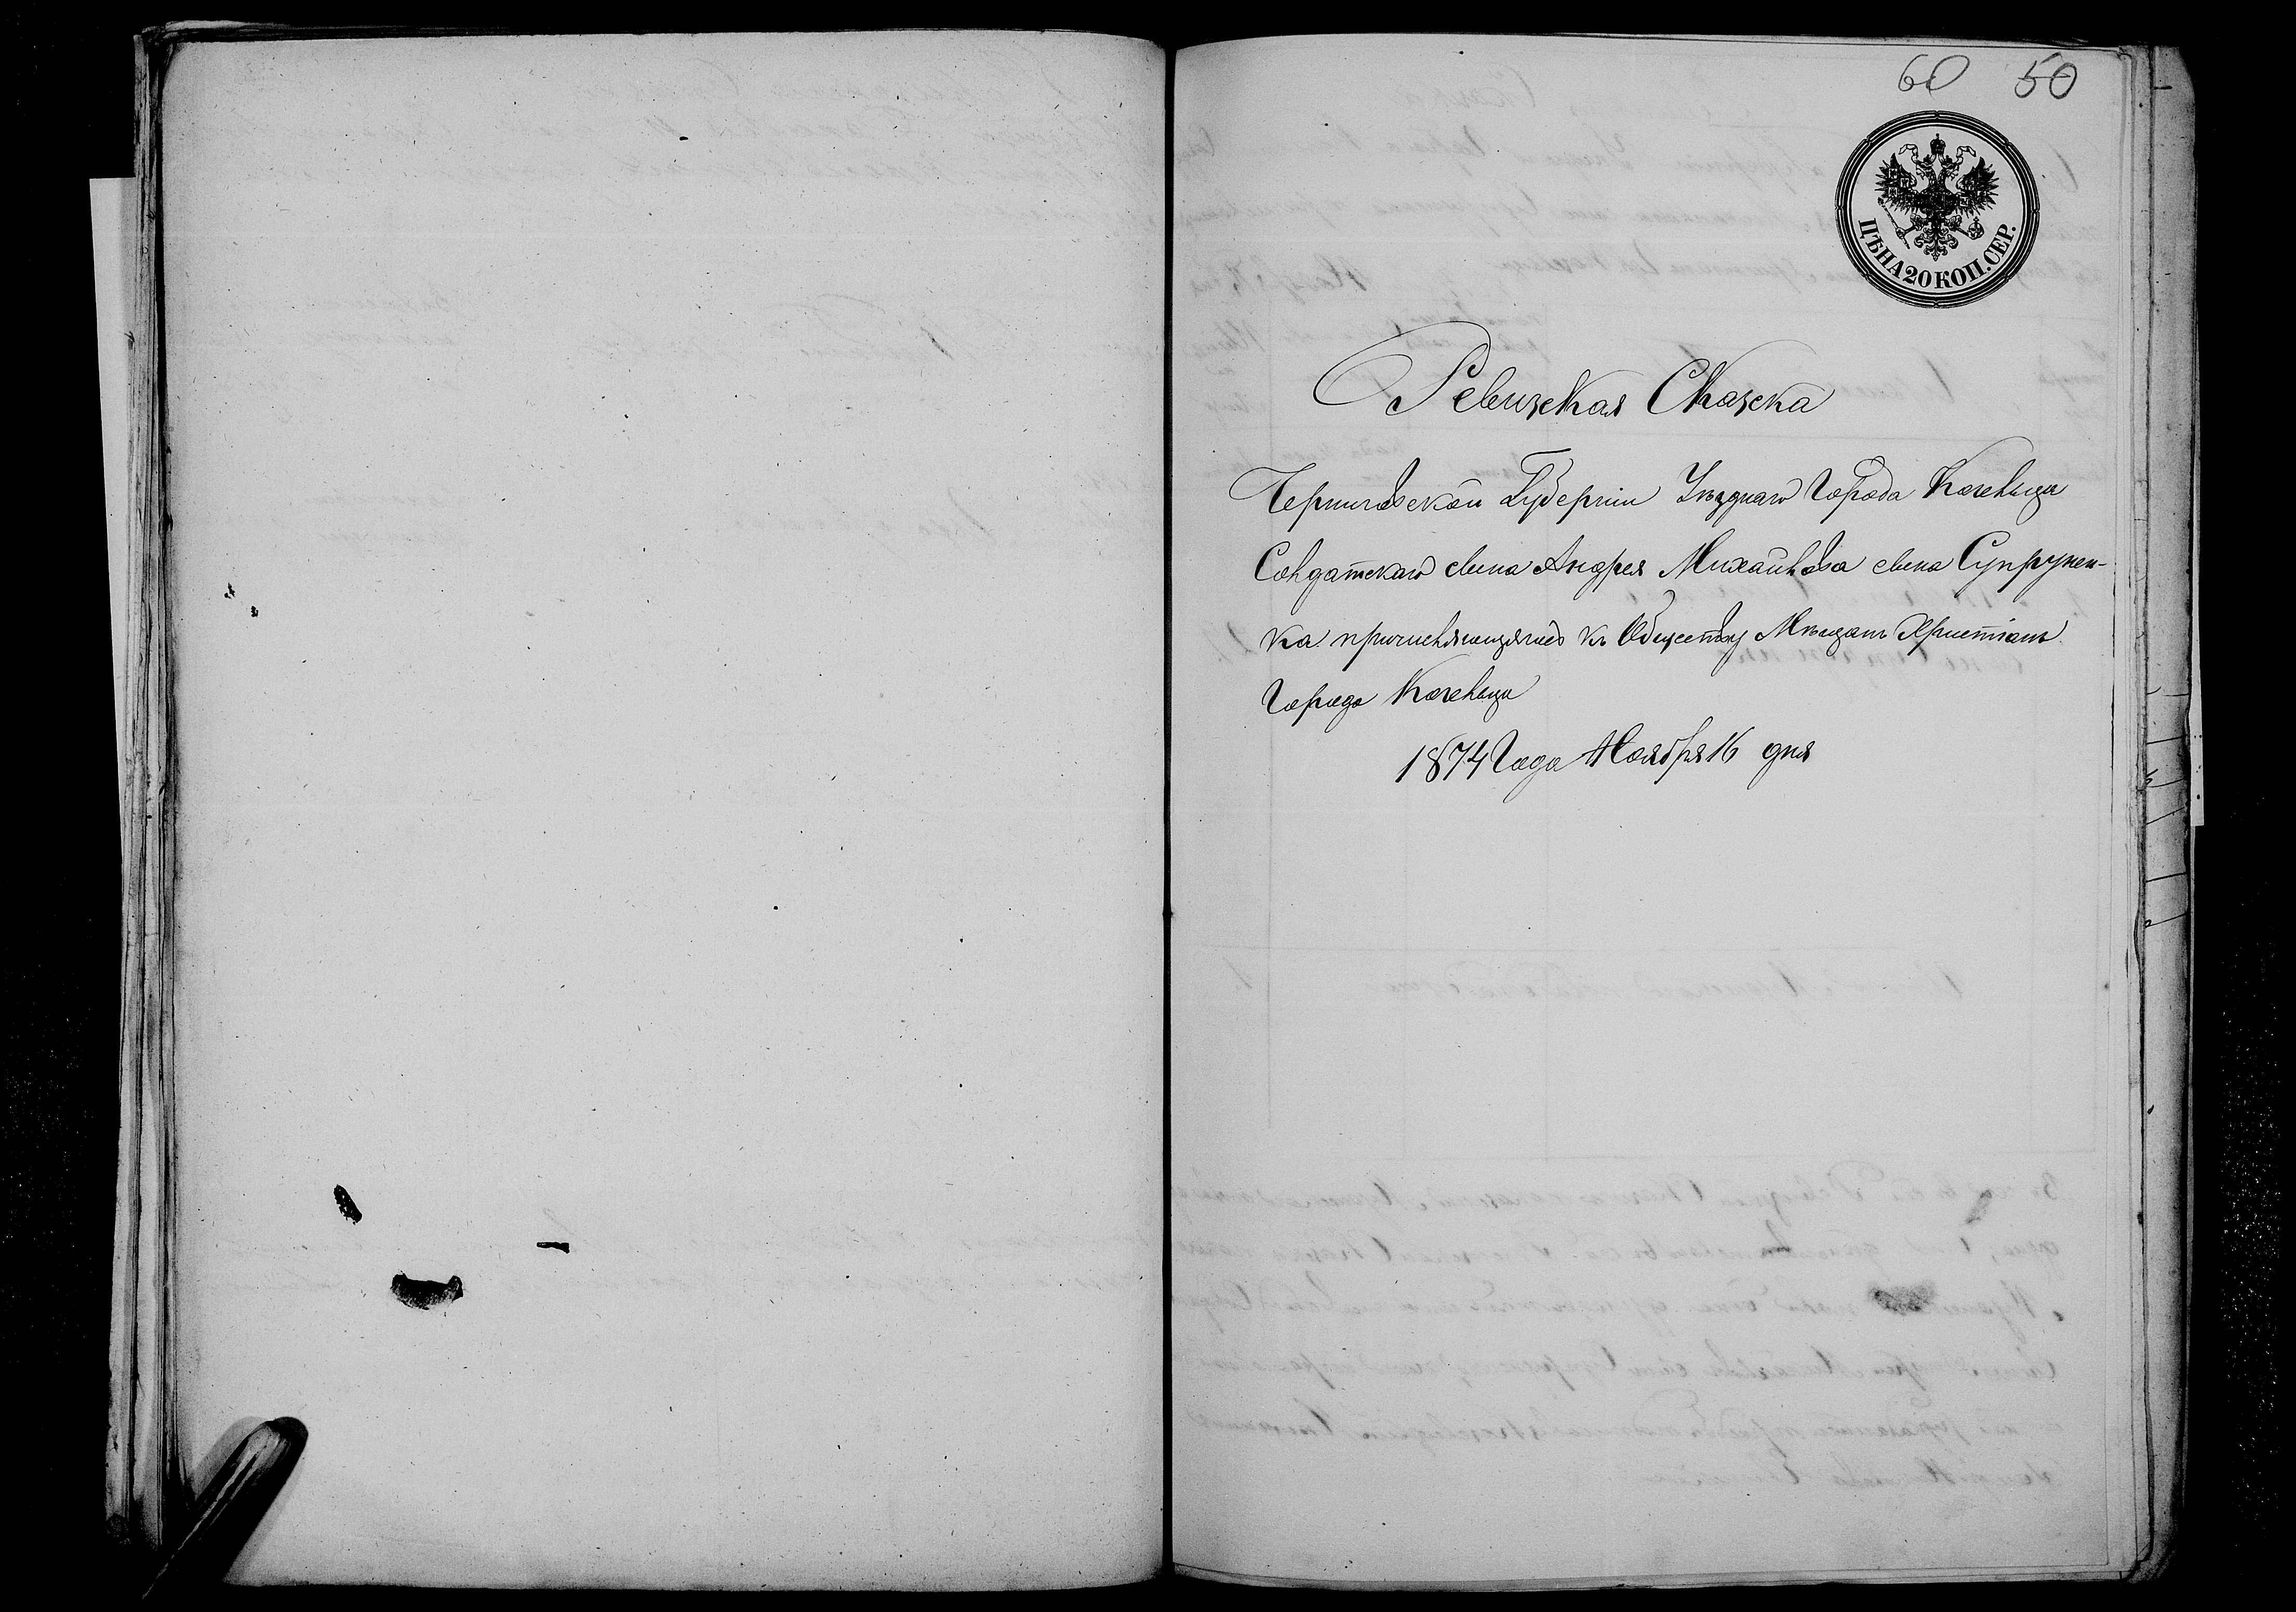 60 50
ЦѢНА 20 КОП. СЕР.
Ревизская Сказка
Черниговской Губерніи Уѣзднаго Города Козельца
Солдатскаго сына Андрея Михайлова сына Супрунен-
ка причисляющагось къ Обществу Мѣщанъ Христіанъ
Города Козельца
1874 Года Ноября 16 дня